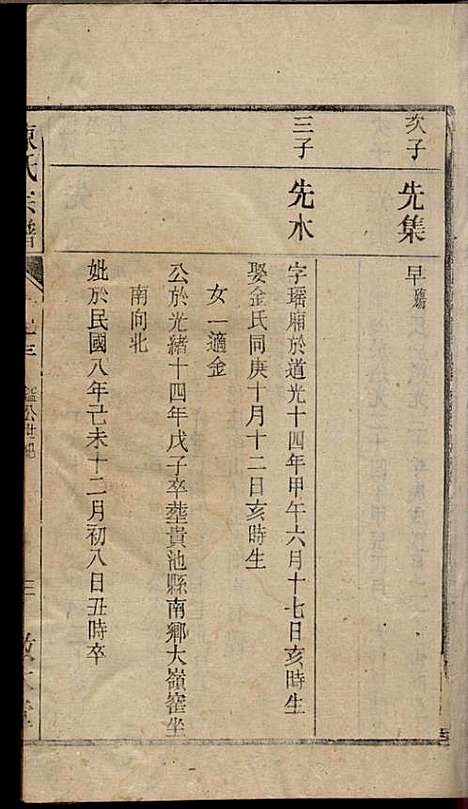 次子
先集
早殤
三子
先水
字瑶廂於道光十四年甲午六月十七日亥時生
娶金氏同庚十月十二日亥時生
女一適金
公於光緒十四年戊子卒塟貴池縣南鄉大嶺窰坐
南向北
妣於民國八年己未十二月初八日丑時卒
陳氏宗譜
鑑公世紀
三